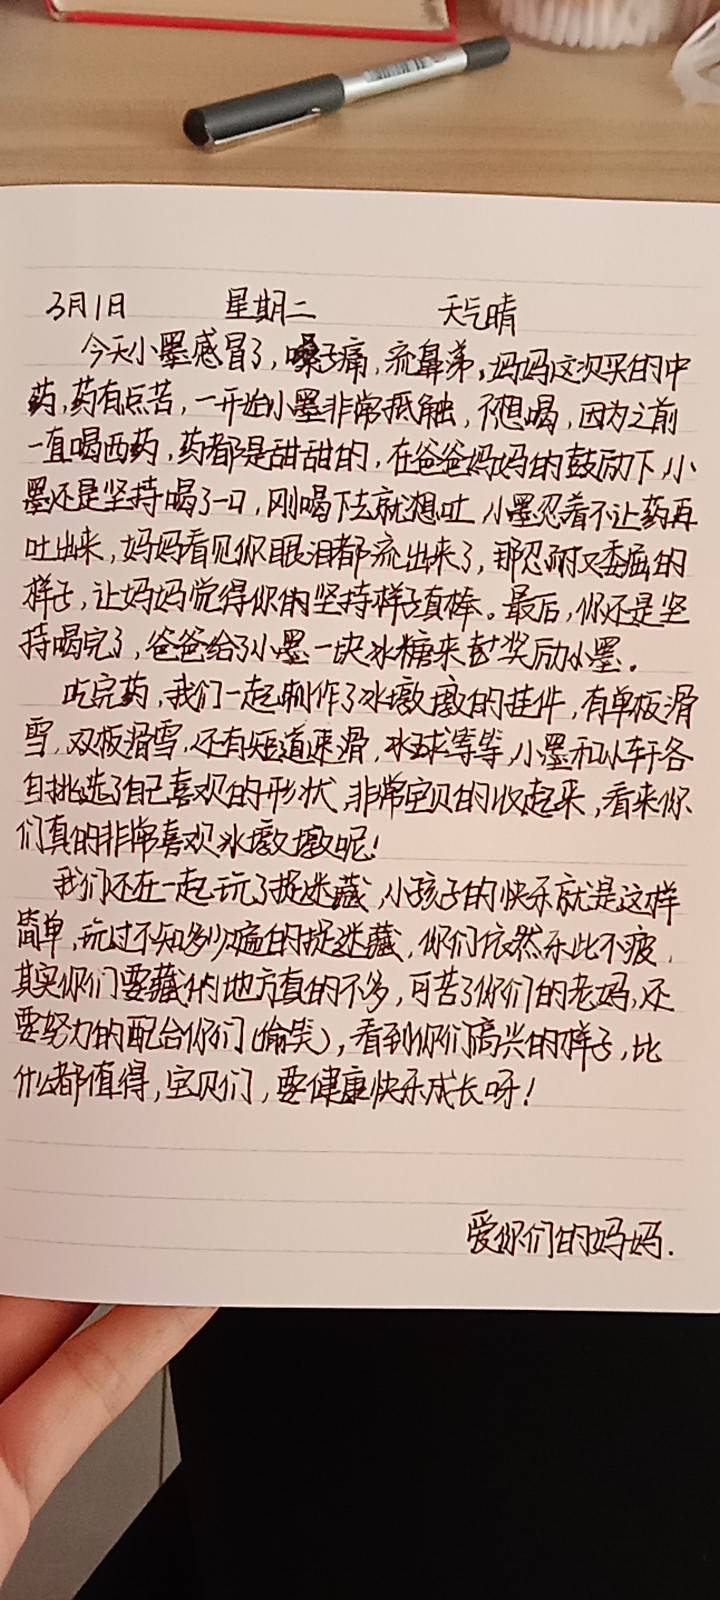 3月1日 星期二 天气晴
今天小墨感冒了，嗓子痛，流鼻涕，妈妈这次买的中
药，药有点苦，一开始小墨非常抵触，不想喝，因为之前
一直喝西药，药都是甜甜的，在爸爸妈妈的鼓励下，小
墨还是坚持喝了一口，刚喝下去就想吐，小墨忍着不让药再
吐出来，妈妈看见你眼泪都流出来了，那忍耐又委屈的
样子，让妈妈觉得你的坚持样子真棒。最后，你还是坚
持喝完了，爸爸给了小墨一块冰糖来奖励小墨。
吃完药，我们一起制作了冰墩墩的挂件，有单板滑
雪，双板滑雪，还有短道速滑，冰球等等，小墨和小轩各
自挑选了自己喜欢的形状，非常宝贝的收起来，看来你
们真的非常喜欢冰墩墩呢！
我们还在一起玩了捉迷藏，小孩子的快乐就是这样
简单，玩过不知多少遍的捉迷藏，你们依然乐此不疲，
其实你们要藏的地方真的不多，可苦了你们的老妈，还
要努力的配合你们（偷笑），看到你们高兴的样子，比
什么都值得，宝贝们，要健康快乐成长呀！
爱你们的妈妈.